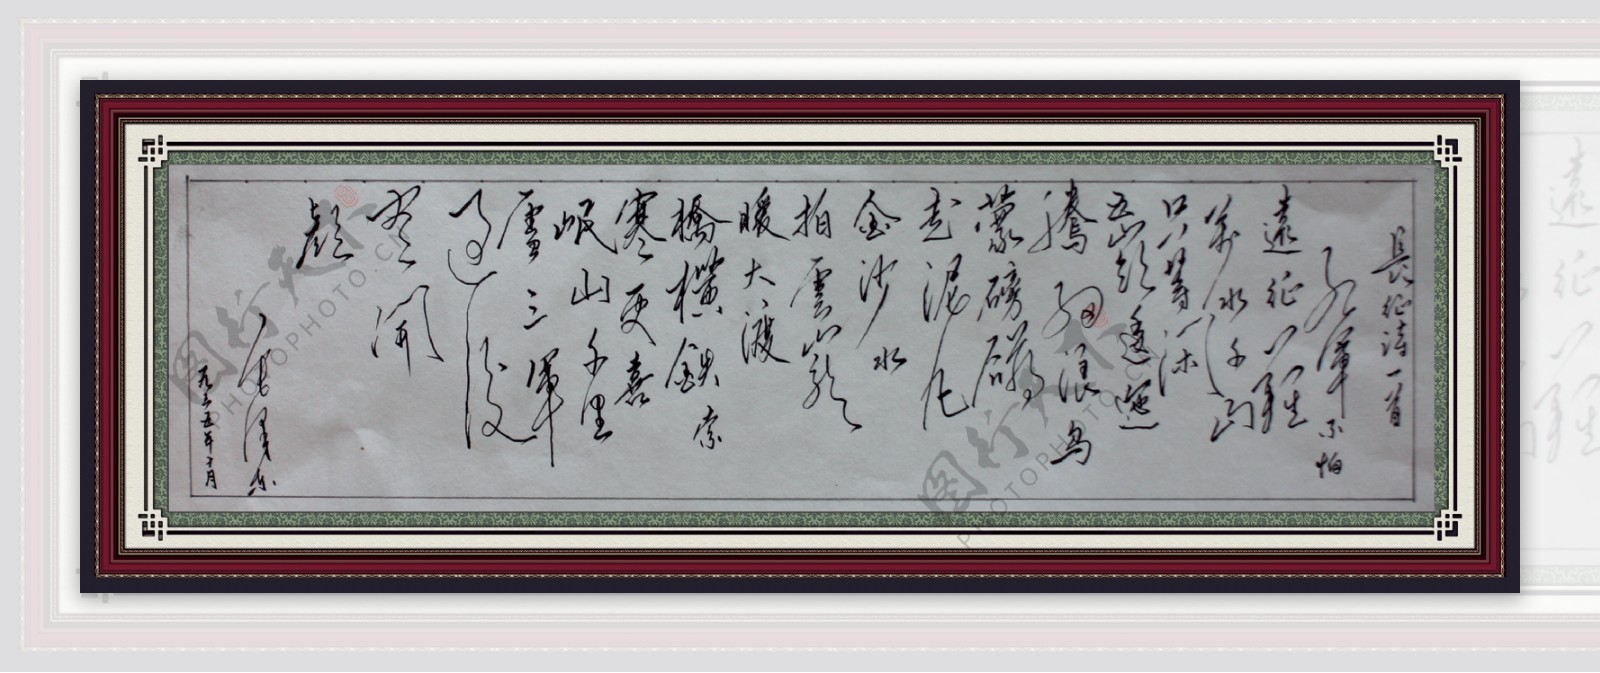 長征詩一首
紅軍不怕
遠征難
萬水千山
只等閒
五嶺逶迤
騰細浪烏
蒙磅礴
走泥丸
金沙水
拍雲崖
暖大渡
橋橫鐵索
寒更喜
岷山千里
雪三軍
過後
盡開
顏
毛澤东
一九三五年十月
图行天下
PHOTOPHOTO.CN
图行天下
PHOTOPHOTO.CN